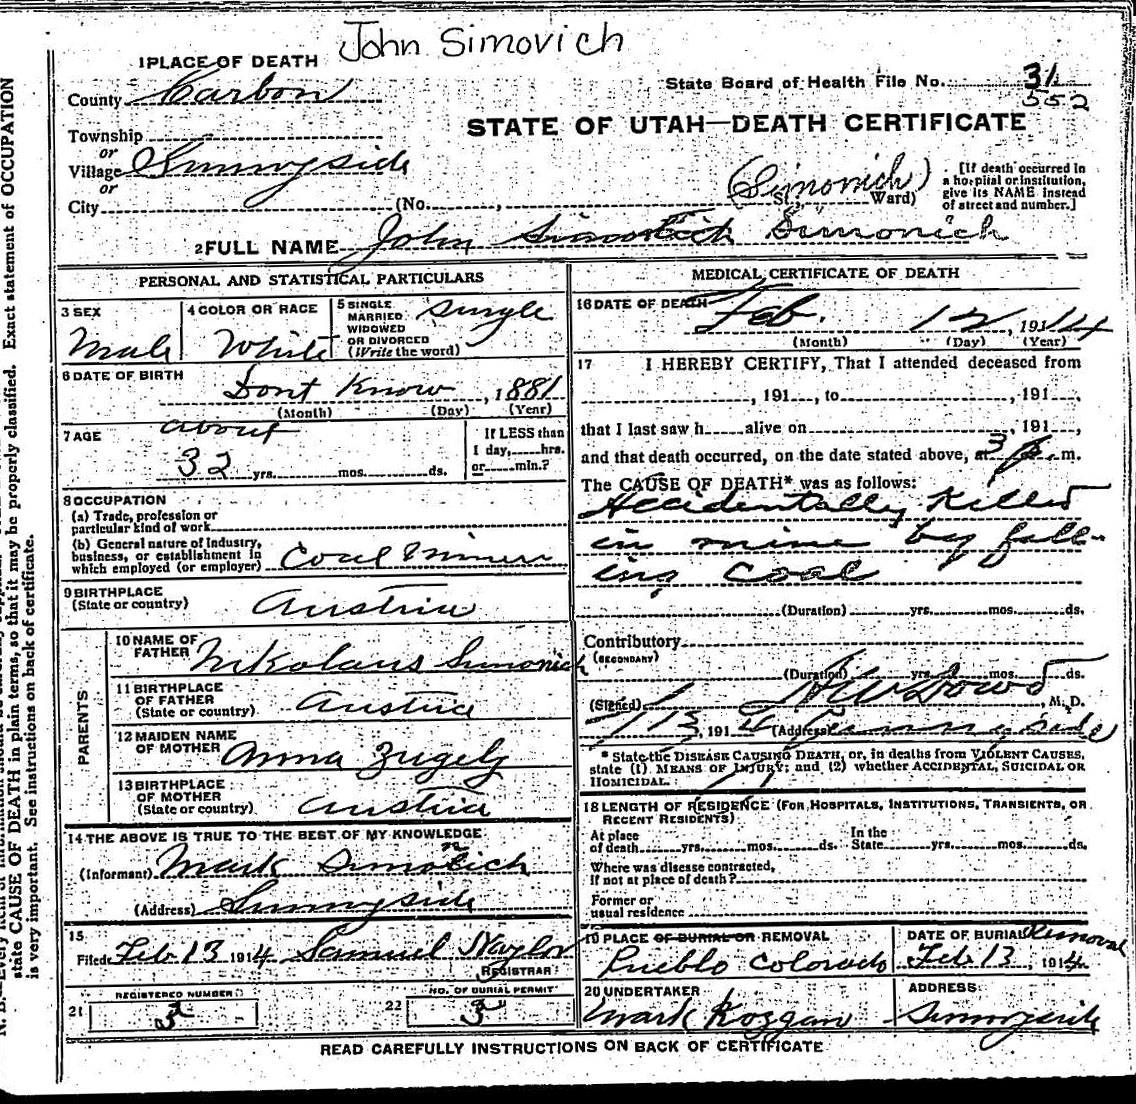 John Simovich
1 PLACE OF DEATH
State Board of Health File No. 31
552
County Carbon
STATE OF UTAH—DEATH CERTIFICATE
Township
or
Village Sunnyside
or
City (No. , St., Ward)
(Simonich)
[If death occurred in
a hospital or institution,
give its NAME instead
of street and number.]
2 FULL NAME John Simonich
PERSONAL AND STATISTICAL PARTICULARS
3 SEX
Male
4 COLOR OR RACE
White
5 SINGLE
MARRIED
WIDOWED
OR DIVORCED
(Write the word)
Single
6 DATE OF BIRTH
Dont Know , 1881
(Month) (Day) (Year)
7 AGE
about
32 yrs. mos. ds.
If LESS than
1 day, hrs.
or min.?
8 OCCUPATION
(a) Trade, profession or
particular kind of work
(b) General nature of industry,
business, or establishment in
which employed (or employer) Coal Miner
9 BIRTHPLACE
(State or country) Austria
PARENTS
10 NAME OF
FATHER Nikolaus Simonich
11 BIRTHPLACE
OF FATHER
(State or country) Austria
12 MAIDEN NAME
OF MOTHER Anna Zugely
13 BIRTHPLACE
OF MOTHER
(State or country) Austria
14 THE ABOVE IS TRUE TO THE BEST OF MY KNOWLEDGE
(Informant) Mark Simonich
(Address) Sunnyside
15
Filed Feb 13 1914 Samuel Naylor
REGISTRAR
21 REGISTERED NUMBER
3
22 NO. OF BURIAL PERMIT
3
MEDICAL CERTIFICATE OF DEATH
16 DATE OF DEATH
Feb. 12 , 1914
(Month) (Day) (Year)
17 I HEREBY CERTIFY, That I attended deceased from
, 191 , to , 191 ,
that I last saw h alive on , 191 ,
and that death occurred, on the date stated above, at 3 p. m.
The CAUSE OF DEATH* was as follows:
Accidentally Killed
in mine by fall-
ing coal
(Duration) yrs. mos. ds.
Contributory
(SECONDARY)
(Duration) yrs. mos. ds.
(Signed) M. D.
, 191 (Address) Sunnyside
* State the DISEASE CAUSING DEATH, or, in deaths from VIOLENT CAUSES,
state (1) MEANS OF INJURY; and (2) whether ACCIDENTAL, SUICIDAL OR
HOMICIDAL.
18 LENGTH OF RESIDENCE (FOR HOSPITALS, INSTITUTIONS, TRANSIENTS, OR
RECENT RESIDENTS)
At place
of death yrs. mos. ds.
In the
State yrs. mos. ds.
Where was disease contracted,
if not at place of death?
Former or
usual residence
19 PLACE OF BURIAL OR REMOVAL
Pueblo Colorado
DATE OF BURIAL Removal
Feb 13 , 1914
20 UNDERTAKER
Mark Kozgan
ADDRESS
Sunnyside
READ CAREFULLY INSTRUCTIONS ON BACK OF CERTIFICATE
state CAUSE OF DEATH in plain terms, so that it may be properly classified. Exact statement of OCCUPATION
is very important. See instructions on back of certificate.